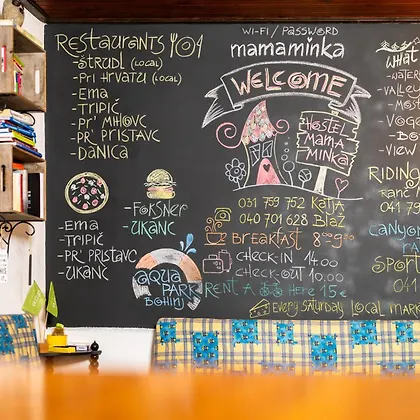 Restaurants
-Štrudl (local)
-Pri Hrvatu (local)
-Ema
-Tripič
-Pr' Mihovc
-Pr' Pristavc
-Danica
-Ema
-Tripič
-Pr' Pristavc
-Ukanc
-Foksner
-Ukanc
Aqua
Park
Bohinj
Wi-Fi / Password
mamaminka
Welcome
Hostel
Mama
Minka
031 759 752 Katja
040 701 628 Blaž
Breakfast
Check-in 14.00
Check-out 10.00
Rent a Here 15€
Every Saturday Local
What
-Water
-Valley
-Most
-Voge
-Bo
-View
Riding
Ranc
041 79
Canyon
Sport
041